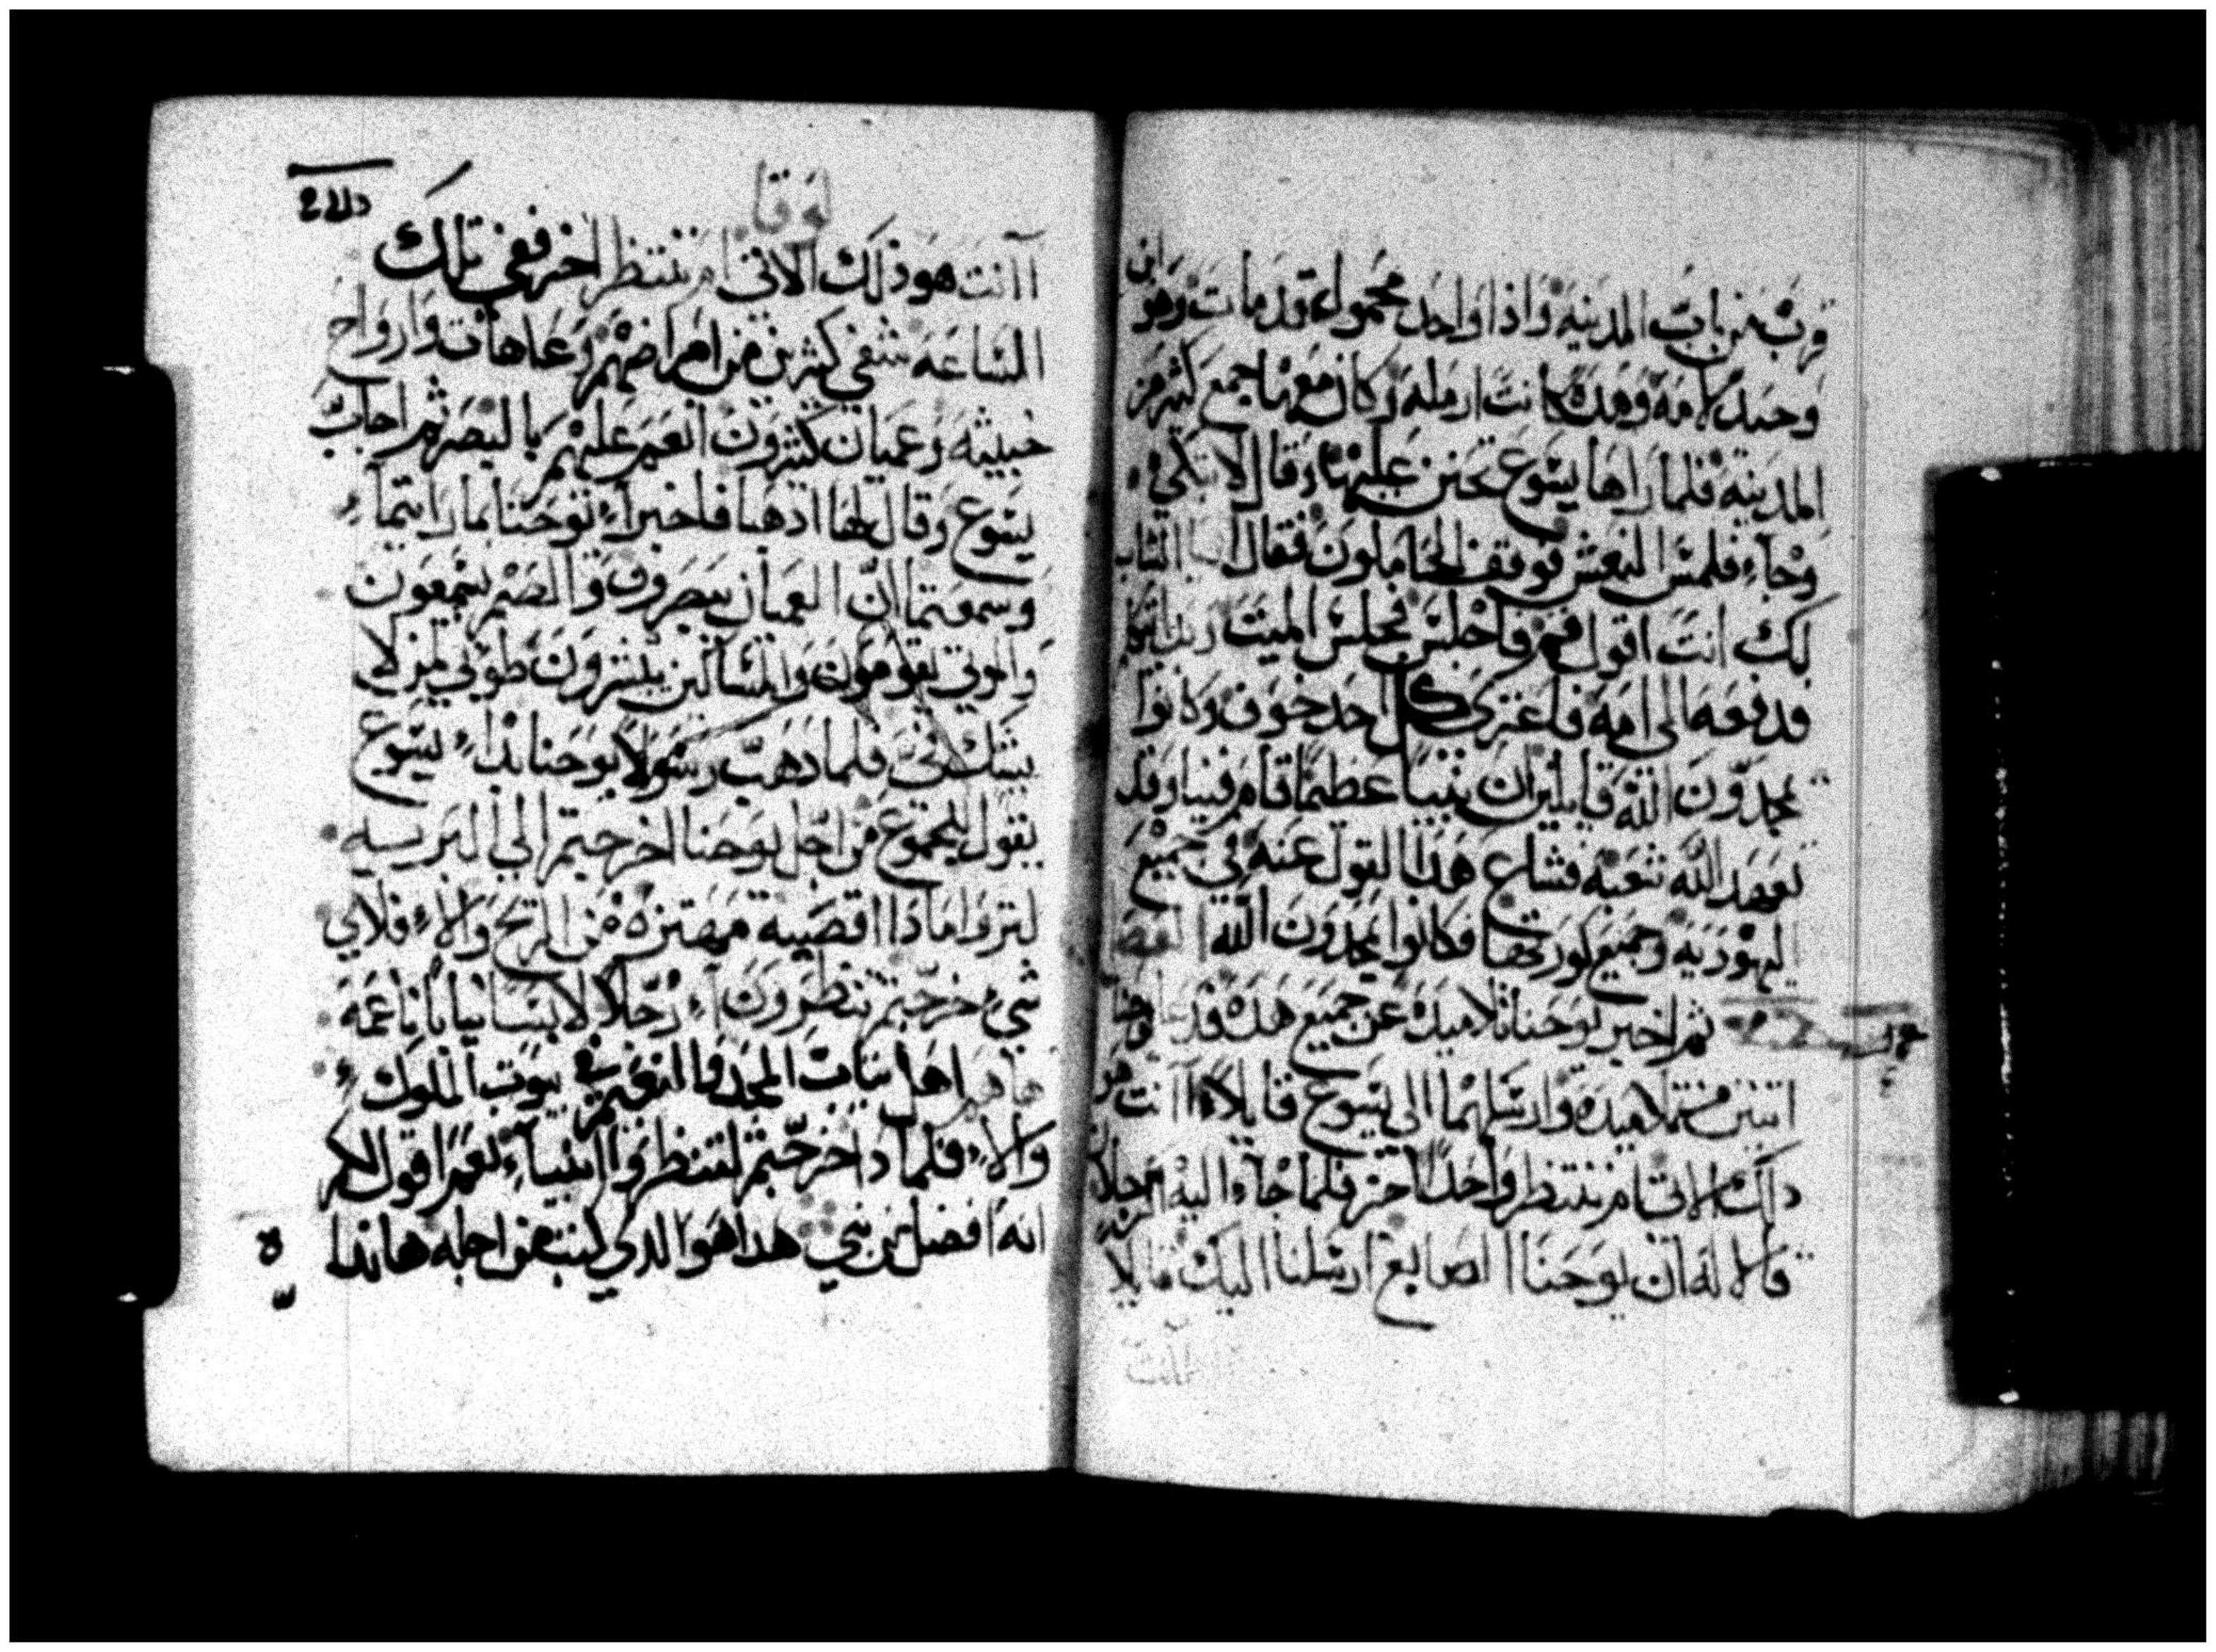 قرب من باب المدينه واذا واحد محمولا قد مات وهو ابن
وحيد لامه وهده كانت ارمله وكان معها جمع كثير من
المدينه فلما راها يسوع تحنن عليها وقال لا تبكي
وجاء فلمس النعش فوقف الحاملون فقال ايها الشاب
لك انت اقول قم فاجلس فجلس الميت
فدفعه الى امه فاعترى كل احد خوف وكانوا
يمجدون الله قايلين ان نبيا عظيما قام فينا وقد
تعهد الله شعبه فشاع هذا القول عنه في جميع
اليهوديه وجميع كورتها فكانوا يمجدون الله
ثم اخبر يوحنا تلاميده عن جميع هده فدعا يوحنا
اتنين من تلاميده وارسلهما الى يسوع قايلا اانت هو
داك الاتي ام ننتظر واحدا اخر فلما جاء اليه الرجلان
قالا له ان يوحنا الصابغ ارسلنا اليك قايلا
اانت
لوقا
اانت هو ذلك الاتي ام ننتظر اخر ففي تلك
الساعه شفي كثيرين من امراضهم وعاهات وارواح
خبيثه وعميان كثيرون انعم عليهم بالبصر ثم اجاب
يسوع وقال لهما ادهبا فاخبراء يوحنا بما رايتماء
وسمعتما ان العميان يبصرون والصم يسمعون
والموتي يقومون والمساكين يبشرون طوبي لمن لا
يشك في فلما دهب رسولا يوحنا بداء يسوع
يقول للجموع من اجل يوحنا اخرجتم الي البريه
لتروا مادا اقصبه مهتزه من الريح والاء فلاي
شيء خرجتم تنظرون اء رجلا لابسا تيابا ناعمه
ها هم اهل تياب المجد والنعيم في بيوت الملوك
والاء فلمادا خرجتم لتنظروا انبياء نعم اقول لكم
انه افضل من نبي هدا هو الدي كتب من اجله هاندا